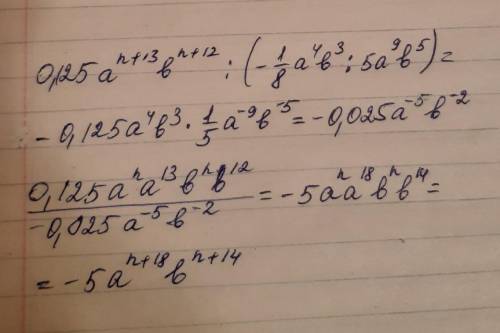 0,125a^{n+13}b^{n+12} : (-\frac{1}{8}a^4b^3 : 5a^9b^5) =
-0,125a^4b^3 · \frac{1}{5}a^{-9}b^{-5} = -0,025a^{-5}b^{-2}
\frac{0,125a^n a^{13}b^n b^{12}}{-0,025a^{-5}b^{-2}} = -5a^n a^{18}b^n b^{14} =
= -5a^{n+18}b^{n+14}